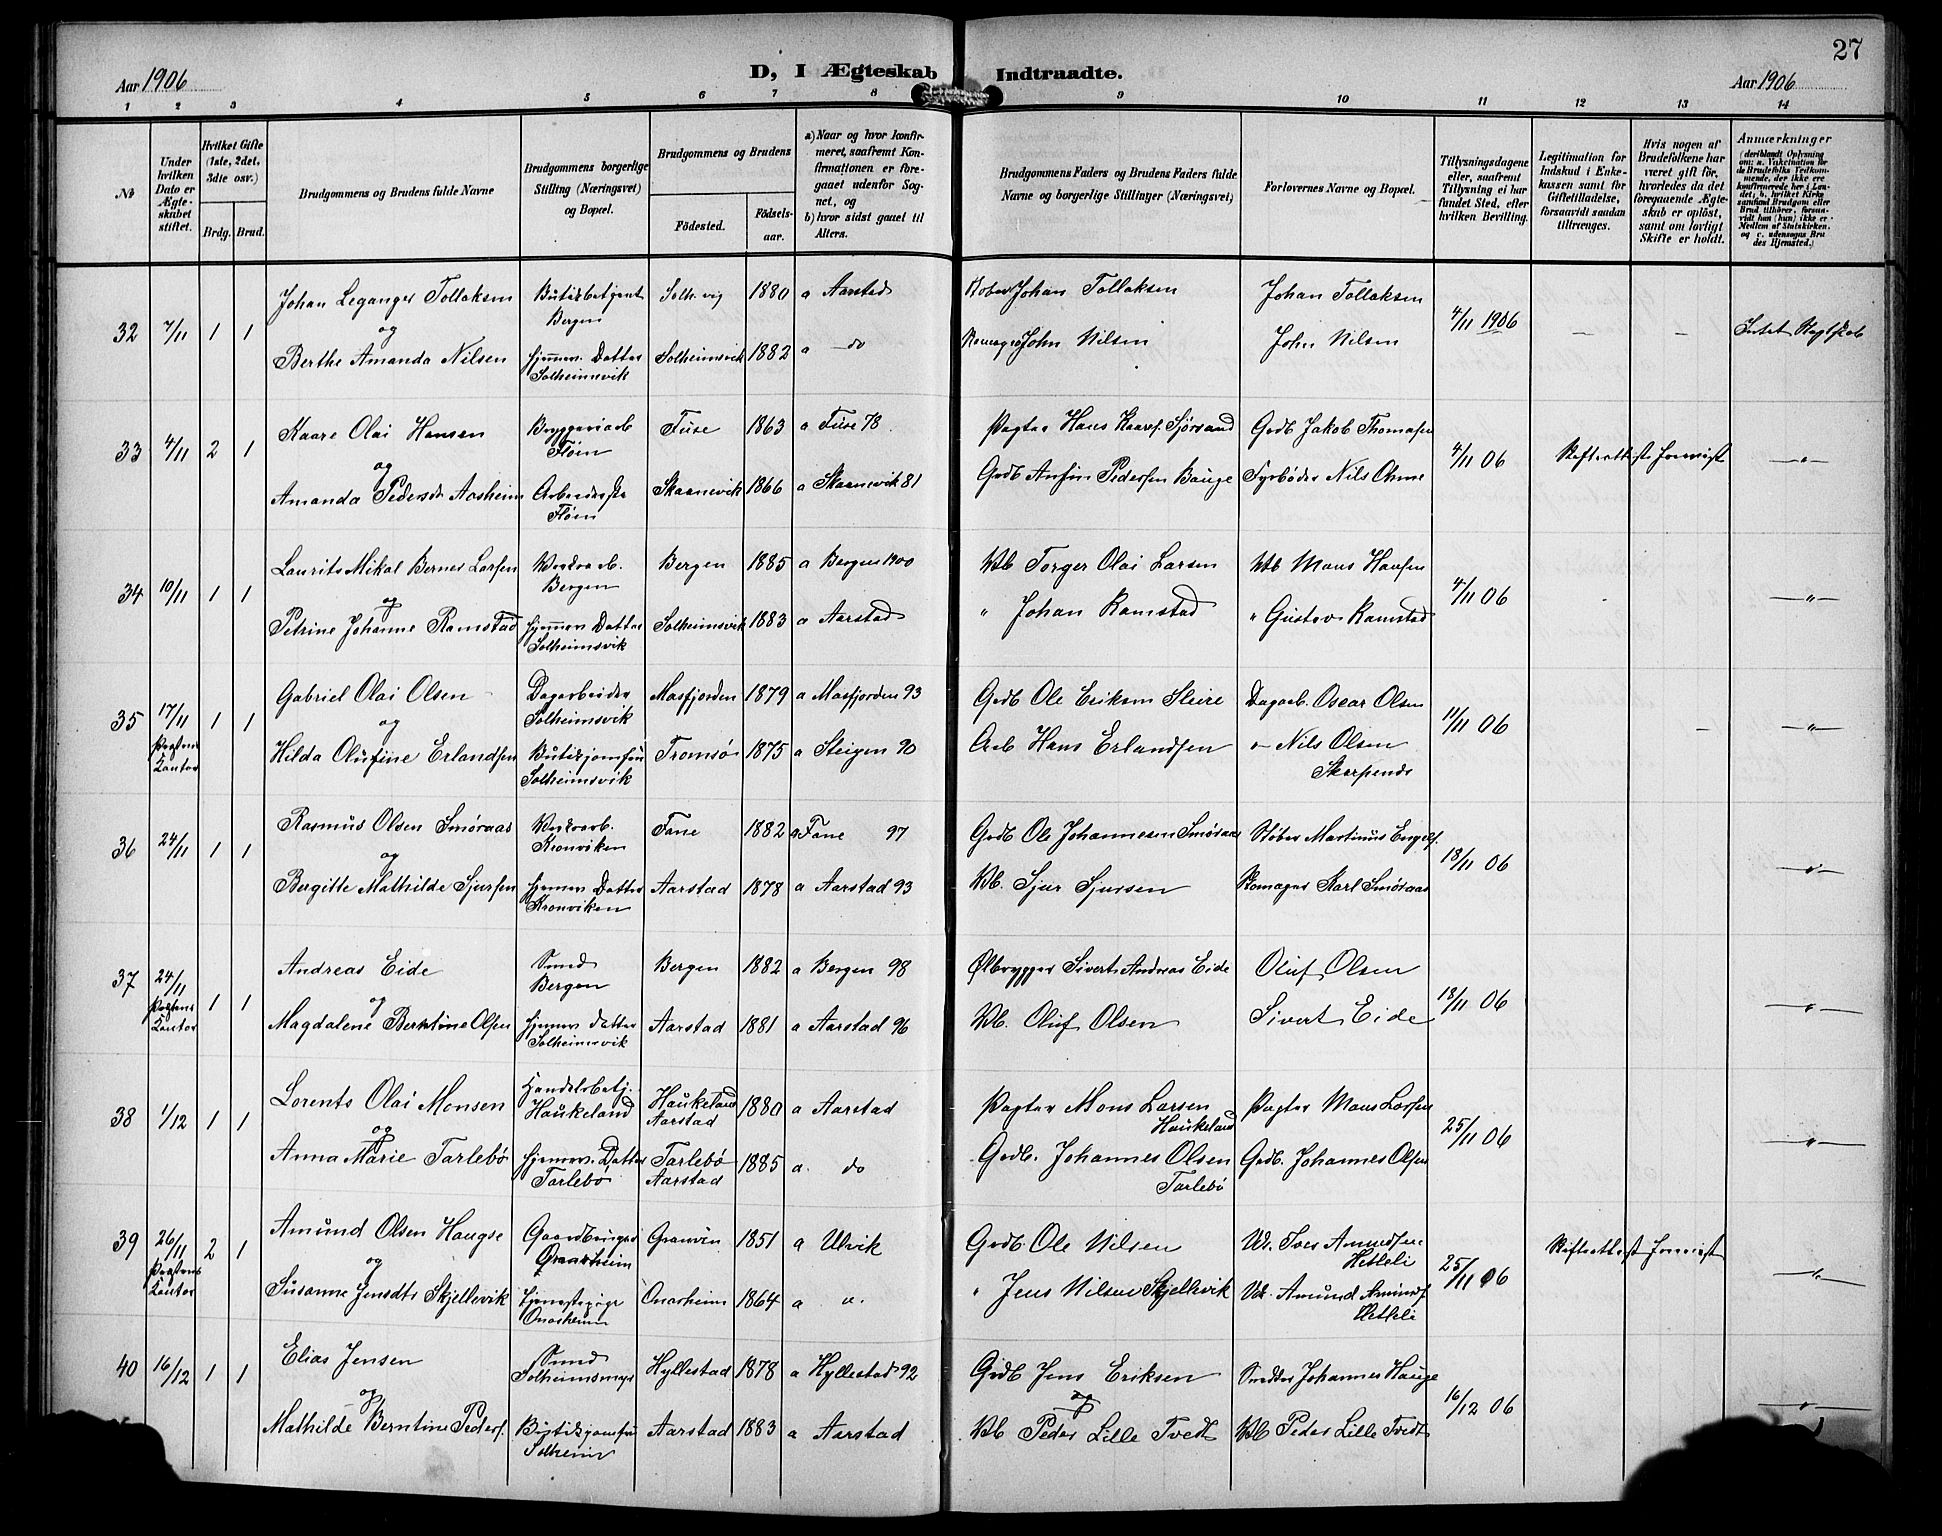 27
Aar 1906
D, I Ægteskab Indtraadte.
Aar 1906
1 2 3 4 5 6 7 8 9 10 11 12 13 14
No
Under hvilken Dato er Ægteskabet stiftet.
Hvilket Gifte (1ste, 2det, 3die osv.)
Brdg. Brud.
Brudgommens og Brudens fulde Navne
Brudgommens borgerlige Stilling (Næringsvei) og Bopæl.
Brudgommens og Brudens
Fødested.
Fødselsaar.
a) Naar og hvor konfirmeret, saafremt Konfirmationen er foregaaet udenfor Sognet, og
b) hvor sidst gaaet til Alters.
Brudgommens Faders og Brudens Faders fulde Navne og borgerlige Stillinger (Næringsvei)
Forlovernes Navne og Bopæl.
Tillysningsdagene eller, saafremt Tillysning ei har fundet Sted, efter hvilken Bevilling.
Legitimation for Indskud i Enkekassen samt for Giftetilladelse, forsaavidt saadan tiltrænges.
Hvis nogen af Brudefolkene har været gift før, hvorledes da det foregaaende Ægteskab er opløst, samt om lovligt Skifte er holdt.
Anmærkninger
(deriblandt Oplysning om: a. Vakcination for de Brudefolks Vedkommende, der ikke ere konfirmerede her i Landet; b. hvilket Kirkesamfund Brudgom eller Brud tilhører, forsaavidt han (hun) ikke er Medlem af Statskirken, og c. udensogns Brudes Hjemsted.)
32 7/11 1 1 Johan Leganger Tollaksen Butikbetjent Bergen Solh.vig 1880 a Aarstad Johan Tollaksen Johan Tollaksen 4/11 1906 — — Intet Slegtskab
og
Berthe Amanda Nilsen hjemmev. Datter Solheimsvik Solheimsvik 1882 a do John Nilsen John Nilsen
33 4/11 2 1 Kaare Olai Hansen Bryggeriarb Fløen Fuse 1863 a Fuse 78. Pagter Hans Kaaref. Sjørsand Godb Jakob Thomasen 4/11 06 Skifteattest forevist —"—
og
Amanda Pedersdt Aasheim Fløen Skaanevik 1866 a Skaanevik 81 Godb Anfin Pedersen Bauge Fyrbøder Nils Ohme
34 10/11 1 1 Laurits Mikal Bernes Larsen Værkarb. Bergen Bergen 1885 a Bergen 1900 Vb Torger Olai Larsen Vb Mons Hansen 4/11 06 —"—
og
Petrine Johanne Ramstad hjemmev Datter Solheimsvik Solheimsvik 1883 a Aarstad " Johan Ramstad " Gustav Ramstad
35 17/11 Præstens Kontor 1 1 Gabriel Olai Olsen Dagarbeider Solheimsvik Masfjorden 1879 a Masfjorden 93 Godb Ole Eriksen Sleire Dagarb. Oscar Olsen 11/11 06 — —"—
og
Hilda Olufine Erlandsen Butikjomfru Solheimsvik Tromsø 1875 a Steigen 90 Arb Hans Erlandsen Nils Olsen
36 24/11 1 1 Rasmus Olsen Smøraas Værkarb. Kronviken Fane 1882 a Fane 97 Godb Ole Johannesen Smøraas Støber Martinus Engelf. 18/11 06 —"—
og
Bergitte Mathilde Sjursen hjemmev Datter Kronviken Aarstad 1878 a Aarstad 93 Vb. Sjur Sjursen Skomager Karl Smøraas
37 24/11 Præstens Kontor 1 1 Andreas Eide Smed Bergen Bergen 1882 a Bergen 98 Ølbrygger Sivert Andreas Eide Oluf Olsen 18/11 06 —"—
og
Magdalene Berntine Olsen hjemmev datter Solheimsvik Aarstad 1881 a Aarstad 96 Vb. Oluf Olsen Sivert Eide
38 1/12 1 1 Lorents Olai Monsen Handelsbetj. Haukeland Haukeland Aarstad 1880 a Aarstad Pagter Mons Larsen Haukeland Pagter Mons Larsen 25/11 06 —"—
og
Anna Marie Tarlebø hjemmev. Datter Tarlebø Tarlebø Aarstad 1885 a. do Godb. Johannes Olsen Tarlebø Godb. Johannes Olsen
39 26/11 Præstens Kontor 2 1 Amund Olsen Haugse Gaardbruger Granvin 1851 a Ulvik Godb. Ole Nilsen Ivar Amundsen Hetleli 25/11 06 Skifteattest forevist —"—
og
Susanne Jensdtr Skjellevik tjenestepige Onarheim Onarheim 1864 a " " Jens Nilsen Skjellevik Amund Amundf Hetleli
40 16/12 1 1 Elias Jensen Smed Solheimsmyr Hyllestad 1878 a Hyllestad 92 Gdb Jens Eriksen Johannes Hauge 16/12 06 —"—
og
Mathilde Berntine Peders. Butikjomfru Solheim Aarstad 1883 a Aarstad Vb Peder Lille Tvedt Vb Peder Lille Tvedt